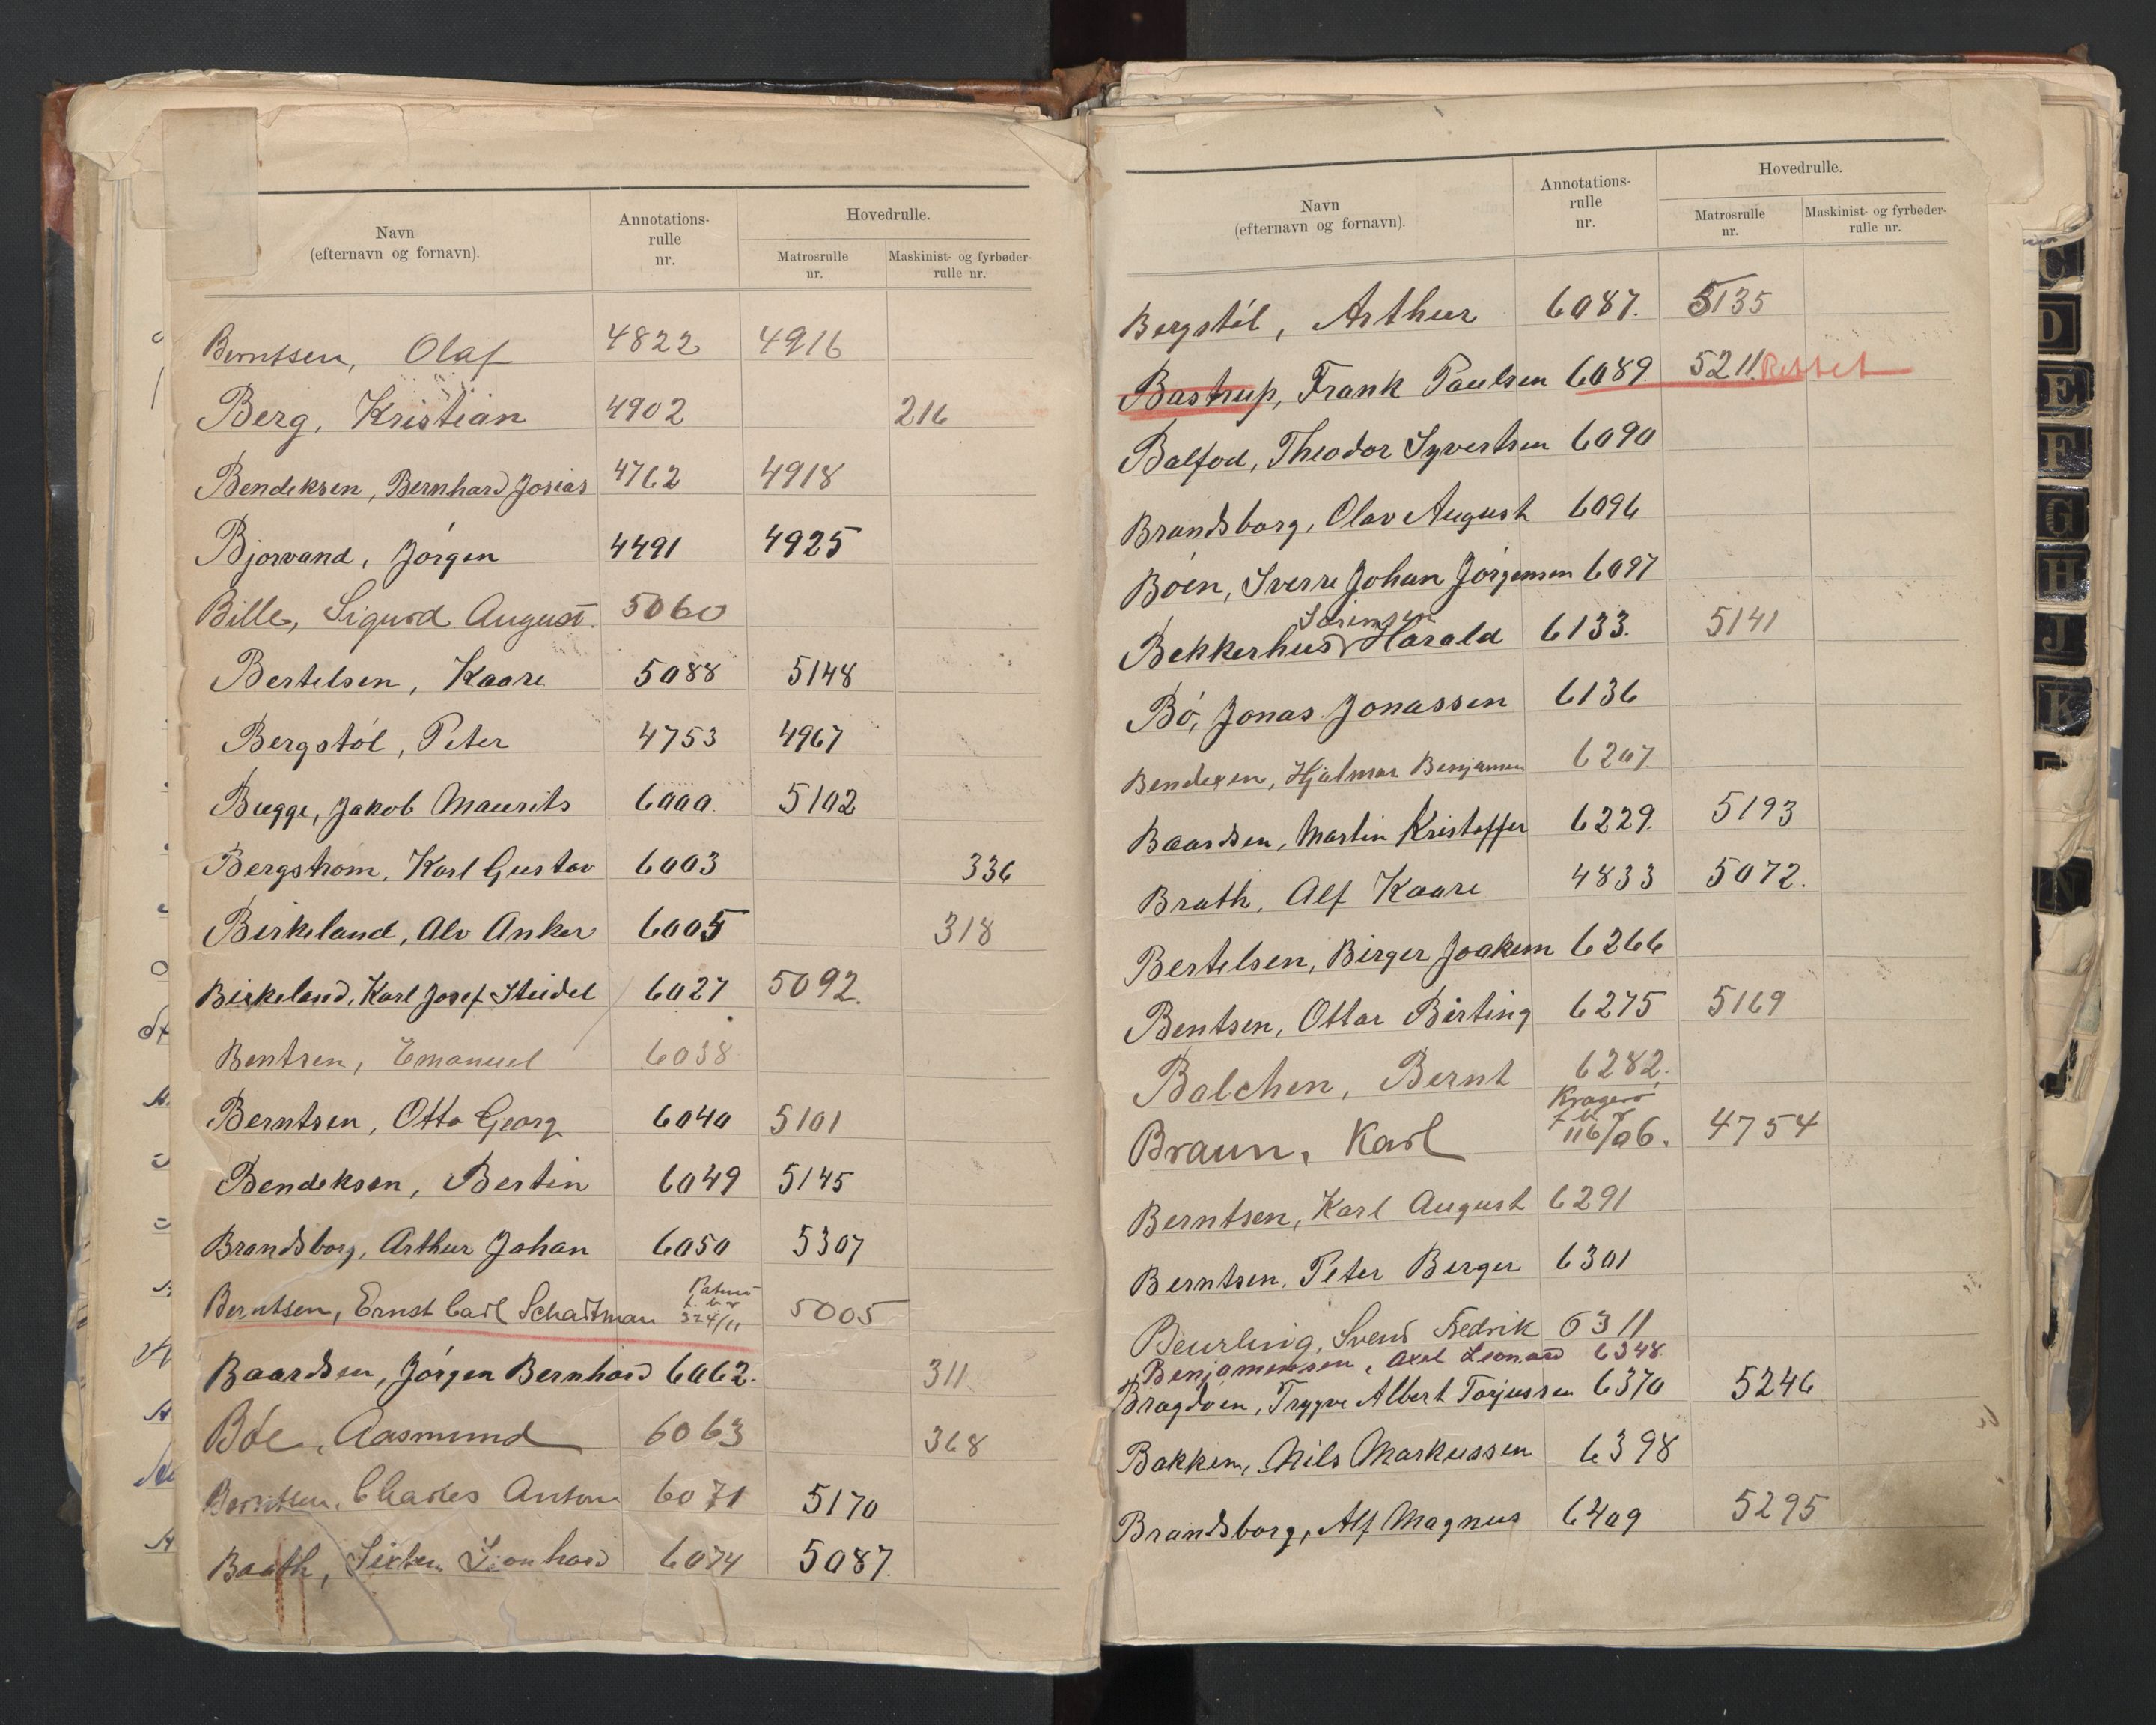 Navn
(efternavn og fornavn).
Annotations-
rulle
nr.
Hovedrulle.
Matrosrulle
nr.
Maskinist- og fyrbøder-
rulle nr.
Berntsen, Olaf 4822 4916
Berg, Kristian 4902 216
Bendeksen, Bernhard Josias 4762 4918
Bjorvand, Jörgen 4491 4925
Bille, Sigurd August. 5060
Bertelsen, Kaare 5088 5148
Bergstöl, Peter 4753 4967
Bugge, Jakob Maurits 6000. 5102
Bergstrom, Karl Gustav 6003 336
Birkeland, Alv Anker 6005 318
Birkeland, Karl Josef Steidel 6027 5092.
Bentsen, Emanuel 6038
Berntsen, Otto Georg 6040 5101
Bendeksen, Bertin 6049 5145
Brandsborg, Arthur Johan 6050 5307
Berntsen, Ernst Carl Schartman 324/11 5005
Baardsen, Jörgen Bernhard 6062. 311
Böe, Aasmund 6063 368
Berntsen, Charles Anton 6071 5170
Baath, Sixten Leonhard 6074 5087.
Navn
(efternavn og fornavn).
Annotations-
rulle
nr.
Hovedrulle.
Matrosrulle
nr.
Maskinist- og fyrbøder-
rulle nr.
Bergstöl, Arthur 6087. 5135
Bastrup, Frank Paulsen 6089. 5211.
Balfod, Theodor Syvertsen 6090
Brandsborg, Olav August 6096
Böen, Sverre Johan Jörgensen 6097
Sörensen
Bekkerhus, Harald 6133. 5141
Bö, Jonas Jonassen 6136
Bendixen, Hjalmar Benjamin 6207.
Baardsen, Martin Kristoffer 6229. 5193
Brath, Alf Kaare 4833 5072.
Bertelsen, Birger Joakim 6266
Bentsen, Ottar Birting 6275 5169
Balchen, Bernt 6282.
Kragerö
Braun, Karl 116/06. 4754
Berntsen, Karl August 6291
Berntsen, Peter Berger 6301
Beurling, Svend Fredrik 6311
Benjaminsen, Axel Leonard 6348.
Bragdöen, Trygve Albert Torjussen 6370 5246
Bakken, Nils Markussen 6398
Brandsborg, Alf Magnus 6409 5295
C
D
E
F
G
H
J
K
N